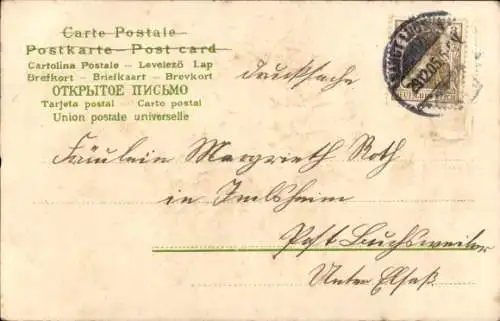 Carte Postale
Postkarte - Post card
Cartolina Postale - Levelező Lap
Brefkort - Briefkaart - Brevkort
ОТКРЫТОЕ ПИСЬМО
Tarjeta postal - Carto postal
Union postale universelle
Drucksache
3
29.12.05.
Fräulein Margrieth Roth
in Imbsheim
Post Buchsweiler
Unter Elsaß